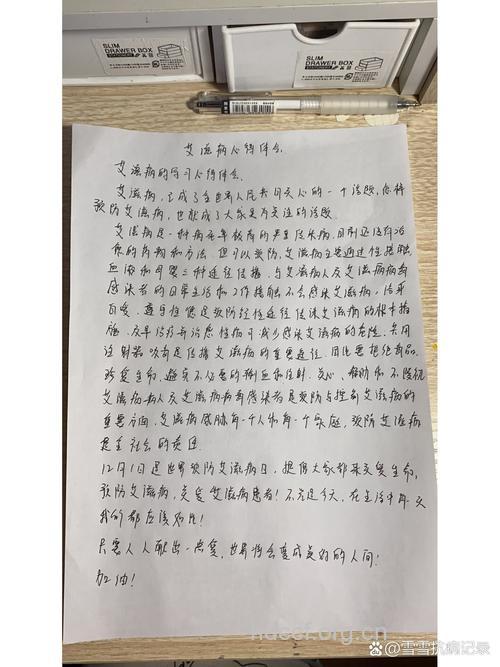 SLIM
DRAWER BOX
STATIONERY
SLIM
DRAWER BOX
STATIONERY
艾滋病心得体会
艾滋病的学习心得体会
艾滋病,已成了全世界人民共同关心的一个话题,怎样
预防艾滋病,也就成了大家更为关注的话题。
艾滋病是一种病死率极高的严重传染病,目前还没有治
愈的药物和方法,但可以预防。艾滋病主要通过性接触、
血液和母婴三种途径传播,与艾滋病人及艾滋病病毒
感染者的日常生活和工作接触不会感染艾滋病,洁身
自爱、遵守性道德是预防经性途径传染艾滋病的根本措
施,及早治疗并治愈性病可减少感染艾滋病的危险,共用
注射器吸毒是传播艾滋病的重要途径,因此要拒绝毒品,
珍爱生命,避免不必要的输血和注射。关心、帮助和不歧视
艾滋病病人及艾滋病病毒感染者是预防与控制艾滋病的
重要方面,艾滋病威胁每一个人和每一个家庭,预防艾滋病
是全社会的责任。
12月1日是世界预防艾滋病日,提倡大家都来关爱生命,
预防艾滋病,关爱艾滋病患者!不光是今天,在生活中每一天
我们都应该如此!
只要人人献出一点爱,世界将会变成美好的人间!
加油!
ndccf.org.cn
雪雪抗病记录